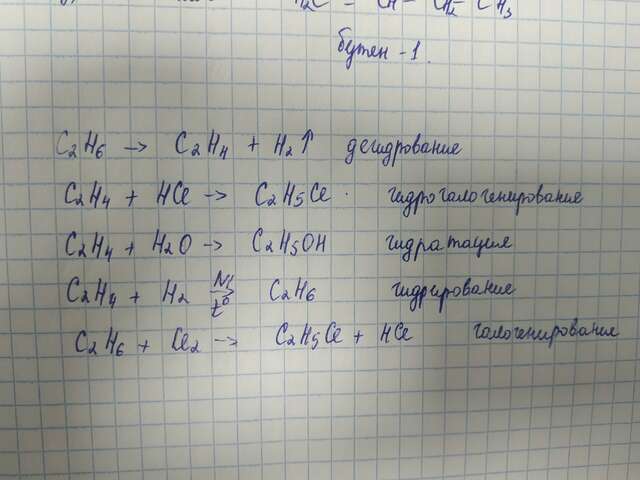 H₂C = CH - CH₂ - CH₃
бутен - 1.
C₂H₆ → C₂H₄ + H₂↑ дегидрование
C₂H₄ + HCl → C₂H₅Cl . гидрогалогенирование
C₂H₄ + H₂O → C₂H₅OH гидратация
C₂H₄ + H₂ Ni → t° C₂H₆ гидрирование
C₂H₆ + Cl₂ → C₂H₅Cl + HCl галогенирование